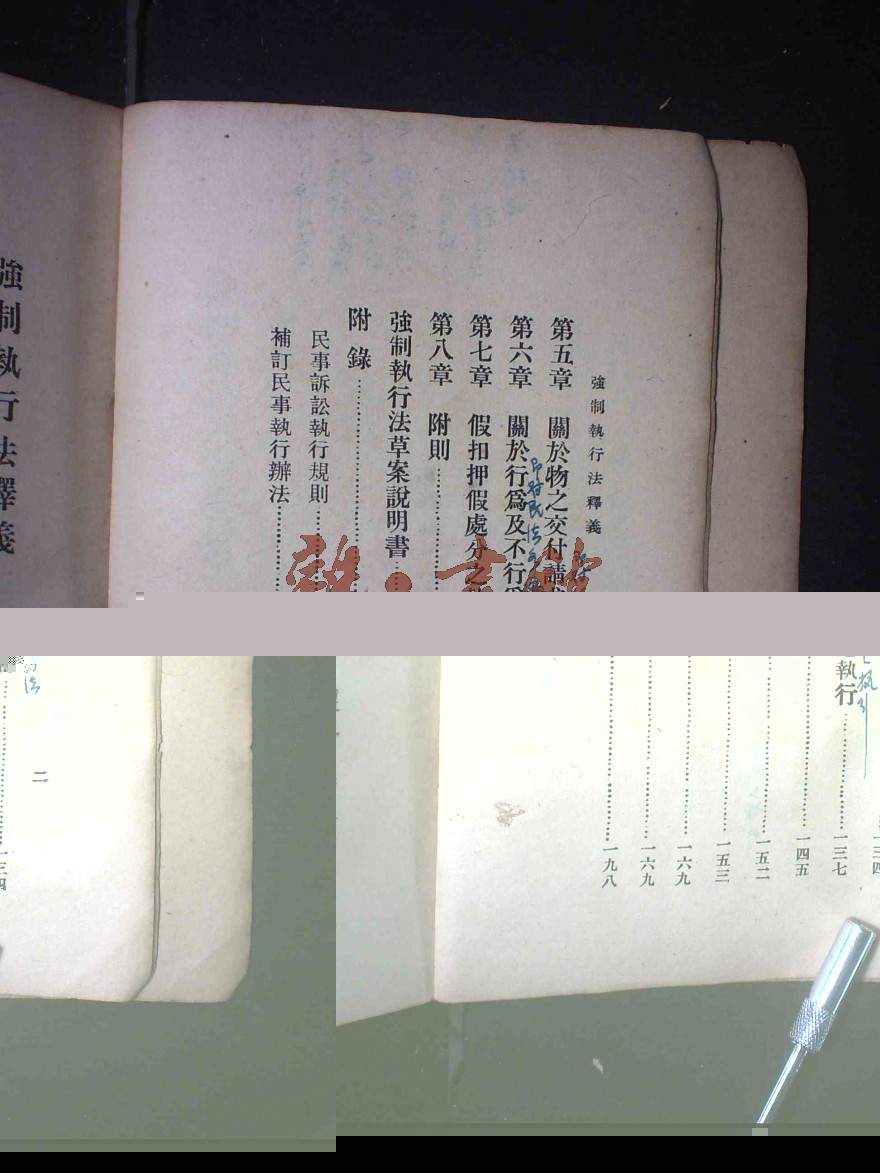 強制執行法釋義
強制執行法釋義
第五章　關於物之交付請
第六章　關於行爲及不行爲
第七章　假扣押假處分之
第八章　附則
強制執行法草案說明書
附錄
民事訴訟執行規則
補訂民事執行辦法
二
一三四
執行
一三四
一三七
一四五
一五二
一五三
一六九
一六九
一九八